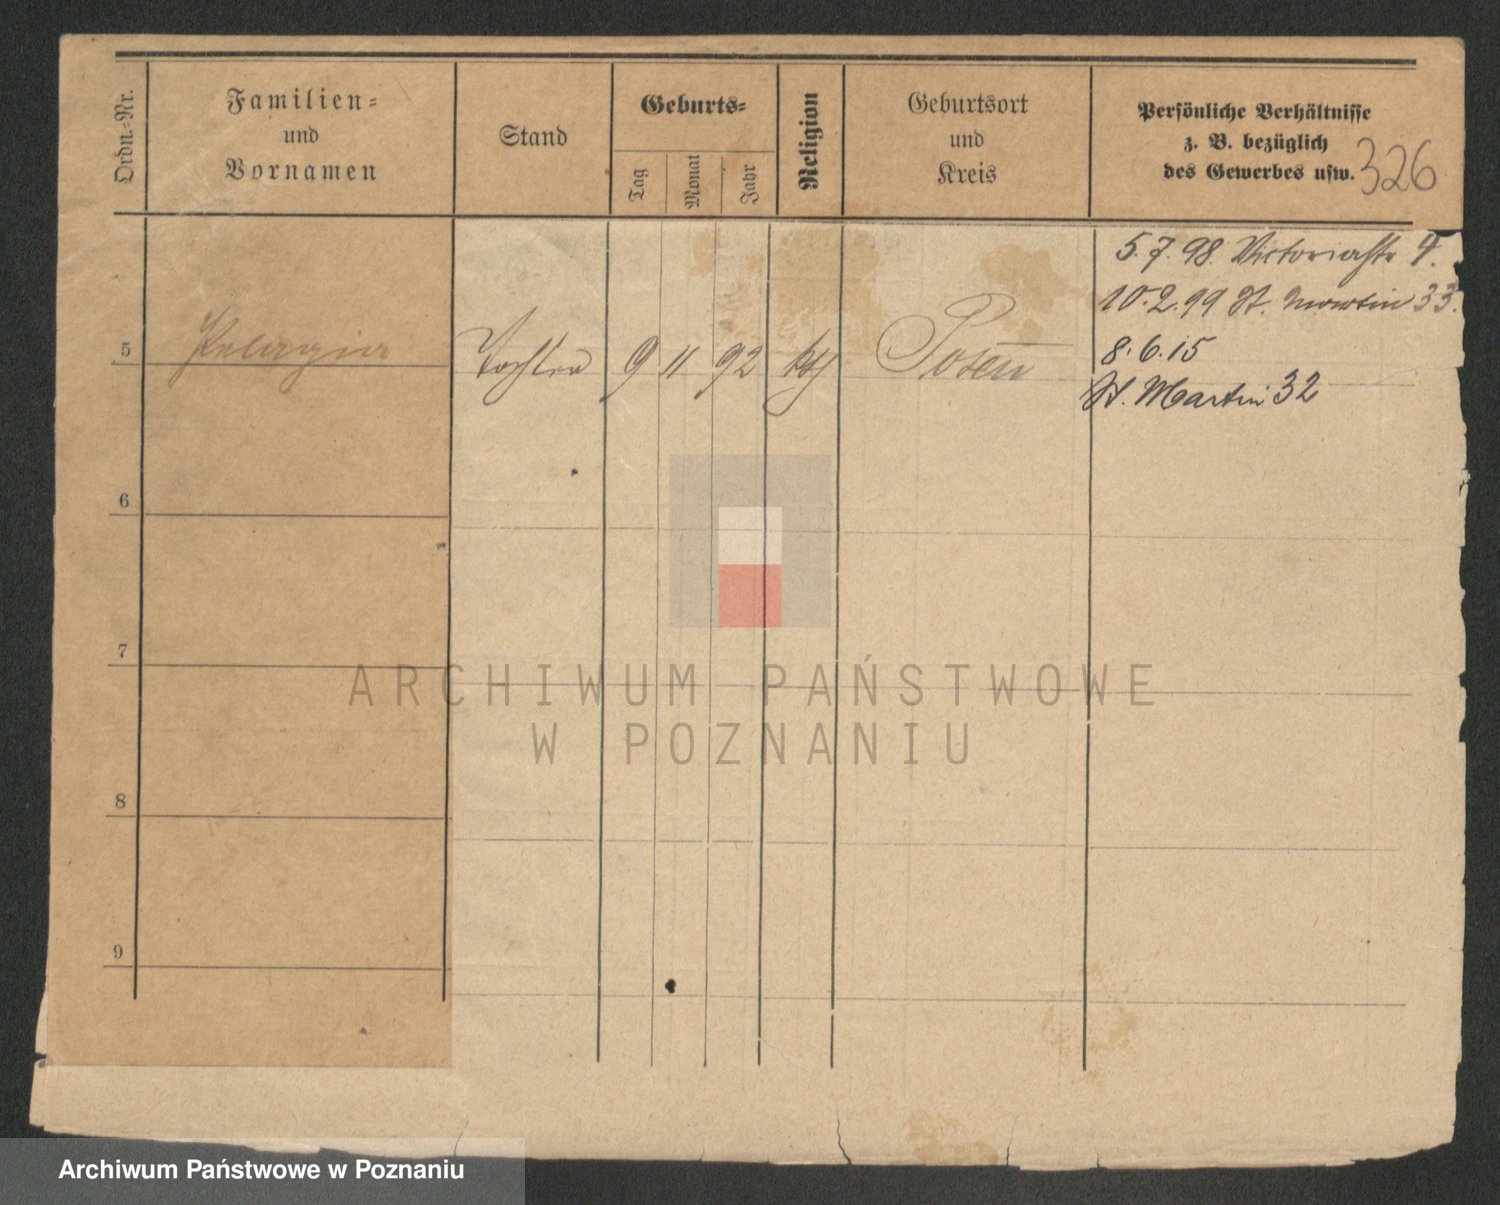 Ordn.-Nr.
Familien-
und
Vornamen
Stand
Geburts-
Tag
Monat
Jahr
Religion
Geburtsort
und
Kreis
Persönliche Verhältnisse
z. B. bezüglich
des Gewerbes usw.
326
5 Pelagia Tochter 9 11 92 kth Posen
5.7.98. Victoriastr 4.
10.2.99 St. Martin 33.
8.6.15
St. Martin 32
6
7
8
9
ARCHIWUM PAŃSTWOWE
W POZNANIU
Archiwum Państwowe w Poznaniu